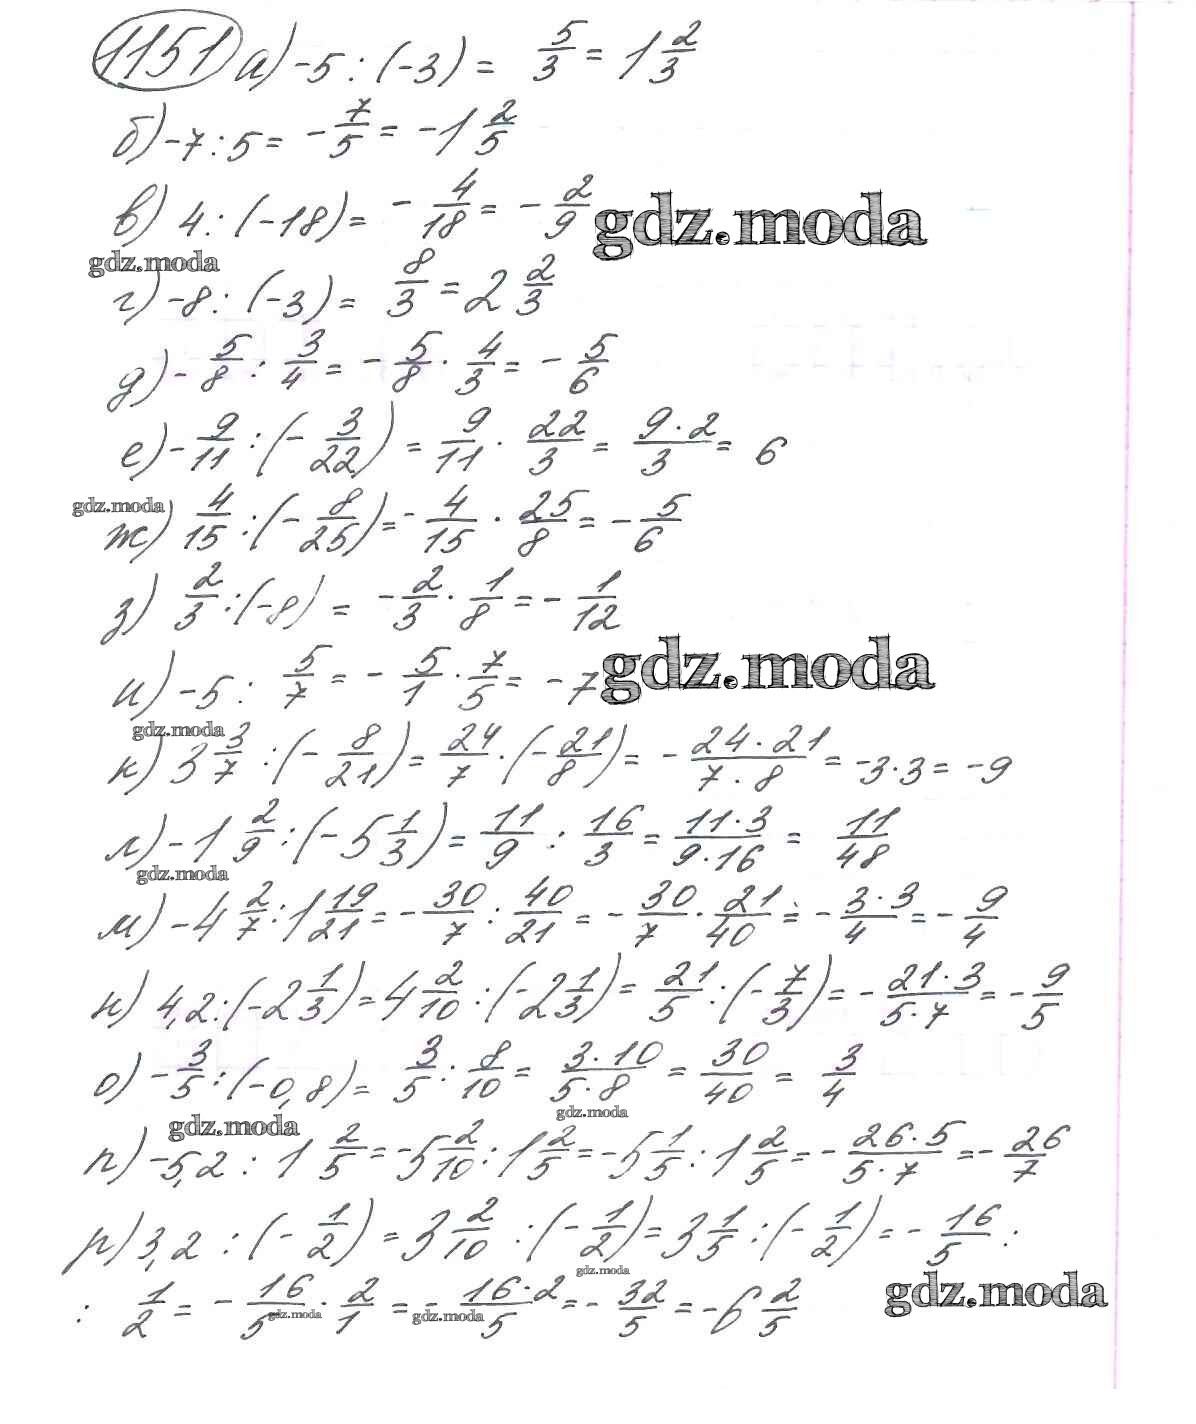 1151 а) -5 : (-3) = 5/3 = 1 2/3
б) -7 : 5 = - 7/5 = -1 2/5
в) 4 : (-18) = - 4/18 = - 2/9
gdz.moda
gdz.moda
г) -8 : (-3) = 8/3 = 2 2/3
д) - 5/8 : 3/4 = - 5/8 · 4/3 = - 5/6
е) - 9/11 : (- 3/22) = 9/11 · 22/3 = 9·2/3 = 6
gdz.moda
ж) 4/15 : (- 8/25) = - 4/15 · 25/8 = - 5/6
з) 2/3 : (-8) = - 2/3 · 1/8 = - 1/12
и) -5 : 5/7 = - 5/1 · 7/5 = -7
gdz.moda
gdz.moda
к) 3 3/7 : (- 8/21) = 24/7 · (- 21/8) = - 24·21/7·8 = -3·3 = -9
л) -1 2/9 : (-5 1/3) = 11/9 : 16/3 = 11·3/9·16 = 11/48
gdz.moda
м) -4 2/7 : 1 19/21 = - 30/7 : 40/21 = - 30/7 · 21/40 = - 3·3/4 = - 9/4
н) 4,2 : (-2 1/3) = 4 2/10 : (-2 1/3) = 21/5 : (- 7/3) = - 21·3/5·7 = - 9/5
о) - 3/5 : (-0,8) = 3/5 : 8/10 = 3·10/5·8 = 30/40 = 3/4
gdz.moda
gdz.moda
п) -5,2 : 1 2/5 = -5 2/10 : 1 2/5 = -5 1/5 : 1 2/5 = - 26·5/5·7 = - 26/7
р) 3,2 : (- 1/2) = 3 2/10 : (- 1/2) = 3 1/5 : (- 1/2) = - 16/5 :
gdz.moda
: 1/2 = - 16/5 · 2/1 = - 16·2/5 = - 32/5 = -6 2/5
gdz.moda
gdz.moda
gdz.moda